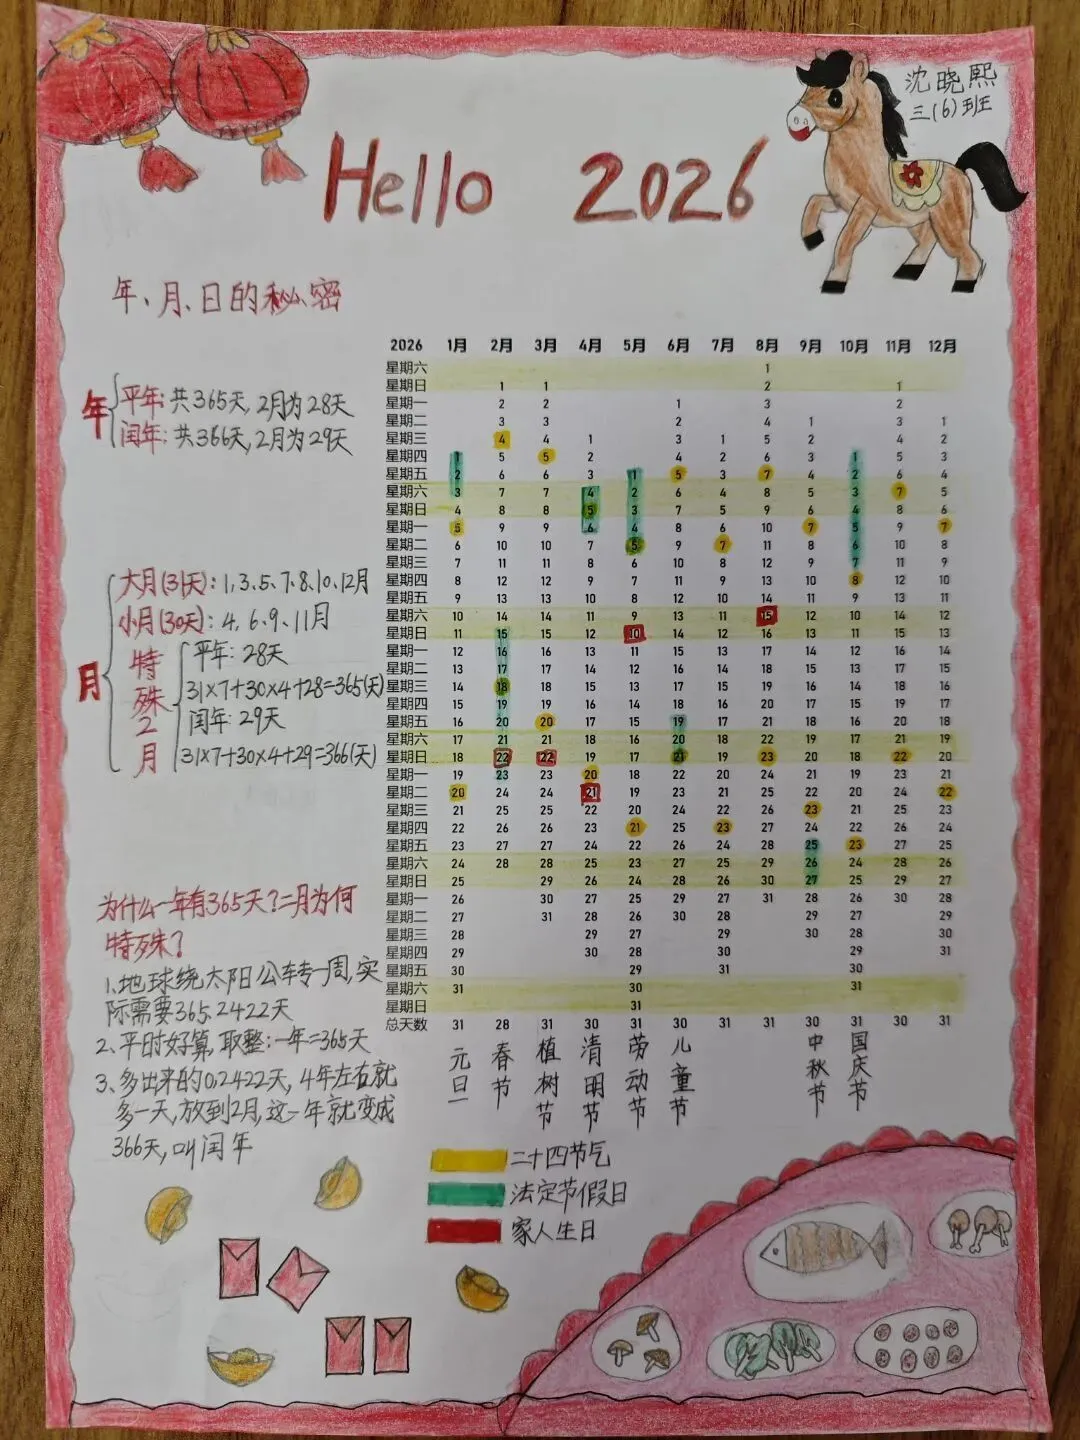 沈晓熙
三(6)班
Hello 2026
年、月、日的秘密
年
平年:共365天,2月为28天
闰年:共366天,2月为29天
月
大月(31天):1、3、5、7、8、10、12月
小月(30天):4、6、9、11月
特殊2月
平年:28天
31×7+30×4+28=365(天)
闰年:29天
31×7+30×4+29=366(天)
为什么一年有365天?二月为何
特殊?
1、地球绕太阳公转一周,实
际需要365.2422天
2、平时好算,取整:一年=365天
3、多出来的0.2422天,4年左右就
多一天,放到2月,这一年就变成
366天,叫闰年
2026 1月 2月 3月 4月 5月 6月 7月 8月 9月 10月 11月 12月
星期六 1
星期日 1 1 2 1
星期一 2 2 1 3 2
星期二 3 3 2 4 1 3 1
星期三 4 4 1 3 1 5 2 4 2
星期四 1 5 5 2 4 2 6 3 1 5 3
星期五 2 6 6 3 1 5 3 7 4 2 6 4
星期六 3 7 7 4 2 6 4 8 5 3 7 5
星期日 4 8 8 5 3 7 5 9 6 4 8 6
星期一 5 9 9 6 4 8 6 10 7 5 9 7
星期二 6 10 10 7 5 9 7 11 8 6 10 8
星期三 7 11 11 8 6 10 8 12 9 7 11 9
星期四 8 12 12 9 7 11 9 13 10 8 12 10
星期五 9 13 13 10 8 12 10 14 11 9 13 11
星期六 10 14 14 11 9 13 11 15 12 10 14 12
星期日 11 15 15 12 10 14 12 16 13 11 15 13
星期一 12 16 16 13 11 15 13 17 14 12 16 14
星期二 13 17 17 14 12 16 14 18 15 13 17 15
星期三 14 18 18 15 13 17 15 19 16 14 18 16
星期四 15 19 19 16 14 18 16 20 17 15 19 17
星期五 16 20 20 17 15 19 17 21 18 16 20 18
星期六 17 21 21 18 16 20 18 22 19 17 21 19
星期日 18 22 22 19 17 21 19 23 20 18 22 20
星期一 19 23 23 20 18 22 20 24 21 19 23 21
星期二 20 24 24 21 19 23 21 25 22 20 24 22
星期三 21 25 25 22 20 24 22 26 23 21 25 23
星期四 22 26 26 23 21 25 23 27 24 22 26 24
星期五 23 27 27 24 22 26 24 28 25 23 27 25
星期六 24 28 28 25 23 27 25 29 26 24 28 26
星期日 25 29 26 24 28 26 30 27 25 29 27
星期一 26 30 27 25 29 27 31 28 26 30 28
星期二 27 31 28 26 30 28 29 27 29
星期三 28 29 27 29 30 28 30
星期四 29 30 28 30 29 31
星期五 30 29 31 30
星期六 31 30 31
星期日 31
总天数 31 28 31 30 31 30 31 31 30 31 30 31
元旦
春节
植树节
清明节
劳动节
儿童节
中秋节
国庆节
二十四节气
法定节假日
家人生日